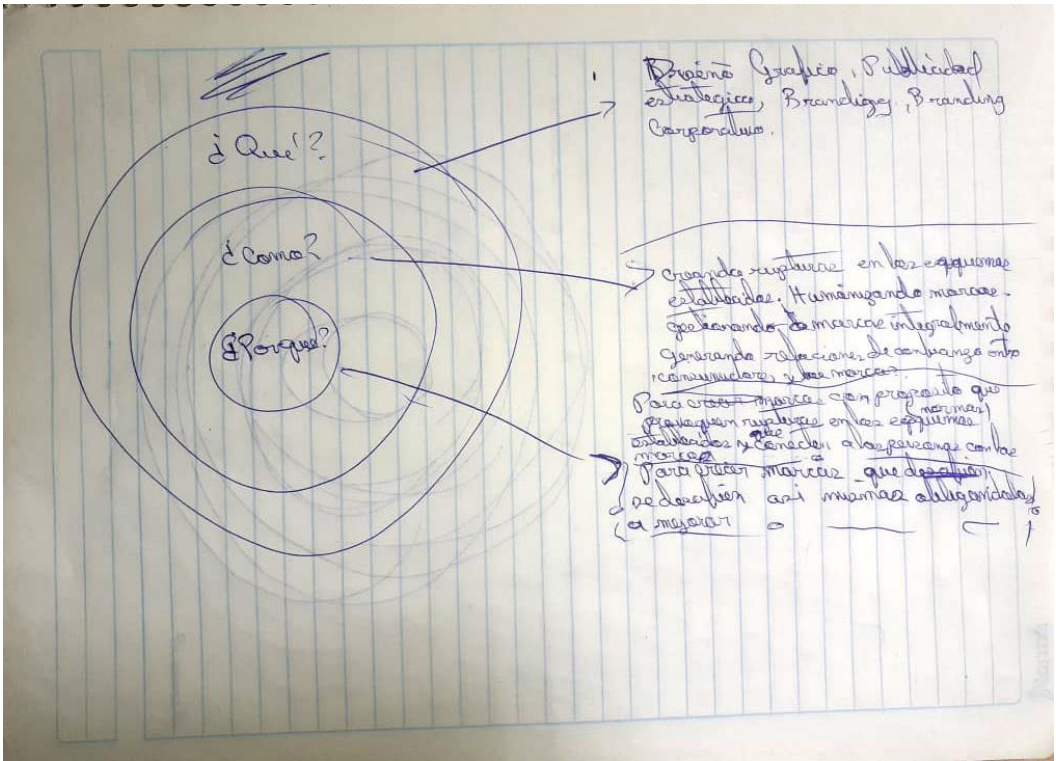 ¿Qué?
¿Como?
¿Porque?
Diseño Grafico, Publicidad
estrategica, Branding, Branding
Corporativo.
creando rupturas en los esquemas
establecidos. Humanizando marcas.
gestionando marcas integralmente
generando relaciones de confianza entre
consumidores y marcas.
Para crear marcas con proposito que
provoquen rupturas en los esquemas (normas)
establecidos y que conecten a las personas con las
marcas
Para crear marcas que desafien
se desafien asi mismas obligandolas
a mejorar